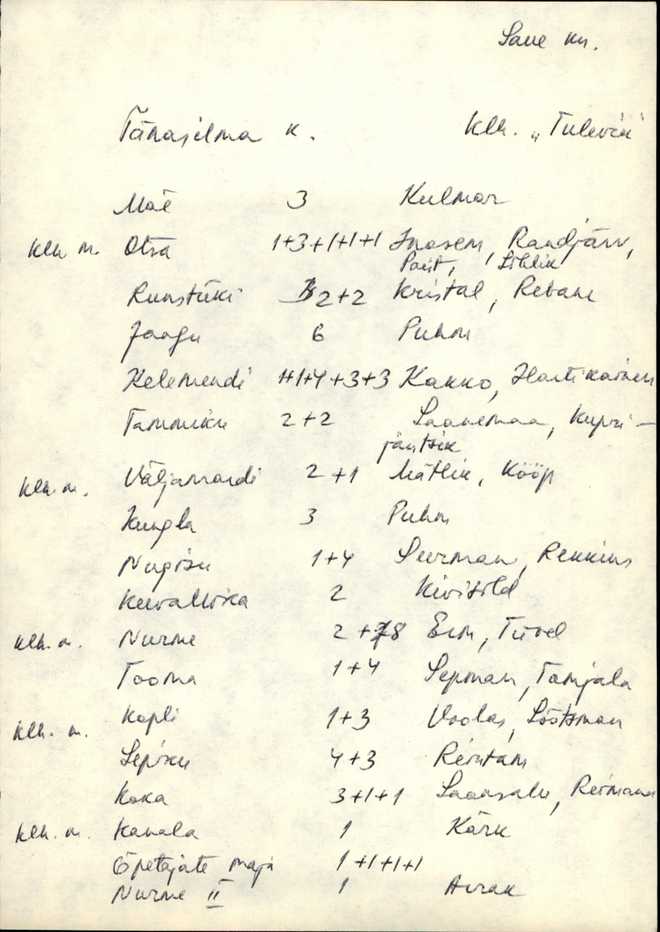 Saue kn.
Tänasilma k. Klh. "Tulevik"
Mäe 3 Kulmar
klh m. Otsa 1+3+1+1+1 Inasen, Randjärv,
Paist, Sihlik
Runstüki 2+2 Kristal, Rebane
Jaagu 6 Puhm
Kelemendi 1+1+4+3+3 Kakko, Hartikainen
Tammiku 2+2 Saaremaa, Kupri-
jantsik
klh. m. Väljamardi 2+1 Mätlik, Kööp
Kungla 3 Puhm
Nugisu 1+4 Suurman, Rekkius
Kuivallika 2 Kivisild
klh. m. Nurme 2+8 Erm, Tüvel
Tooma 1+4 Sepman, Tamjala
klh. m. Kopli 1+3 Voolas, Söötsman
Sepiku 4+3 Reintam
Koka 3+1+1 Saansalu, Reimann
klh. m. Kanala 1 Kärk
Õpetajate maja 1+1+1+1
Nurme II 1 Avrak